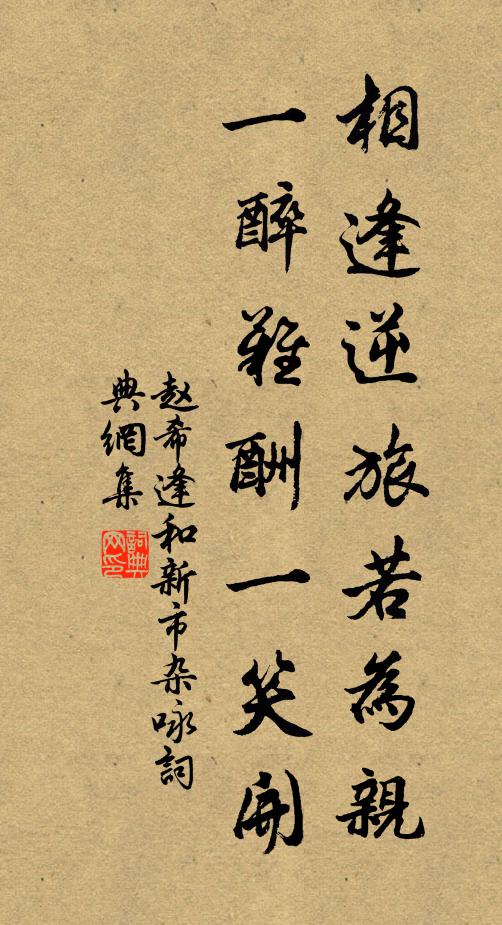 相逢逆旅若為親
一醉難酬一笑開
赵希逢和新市杂咏詞
典網集
詞典
网印